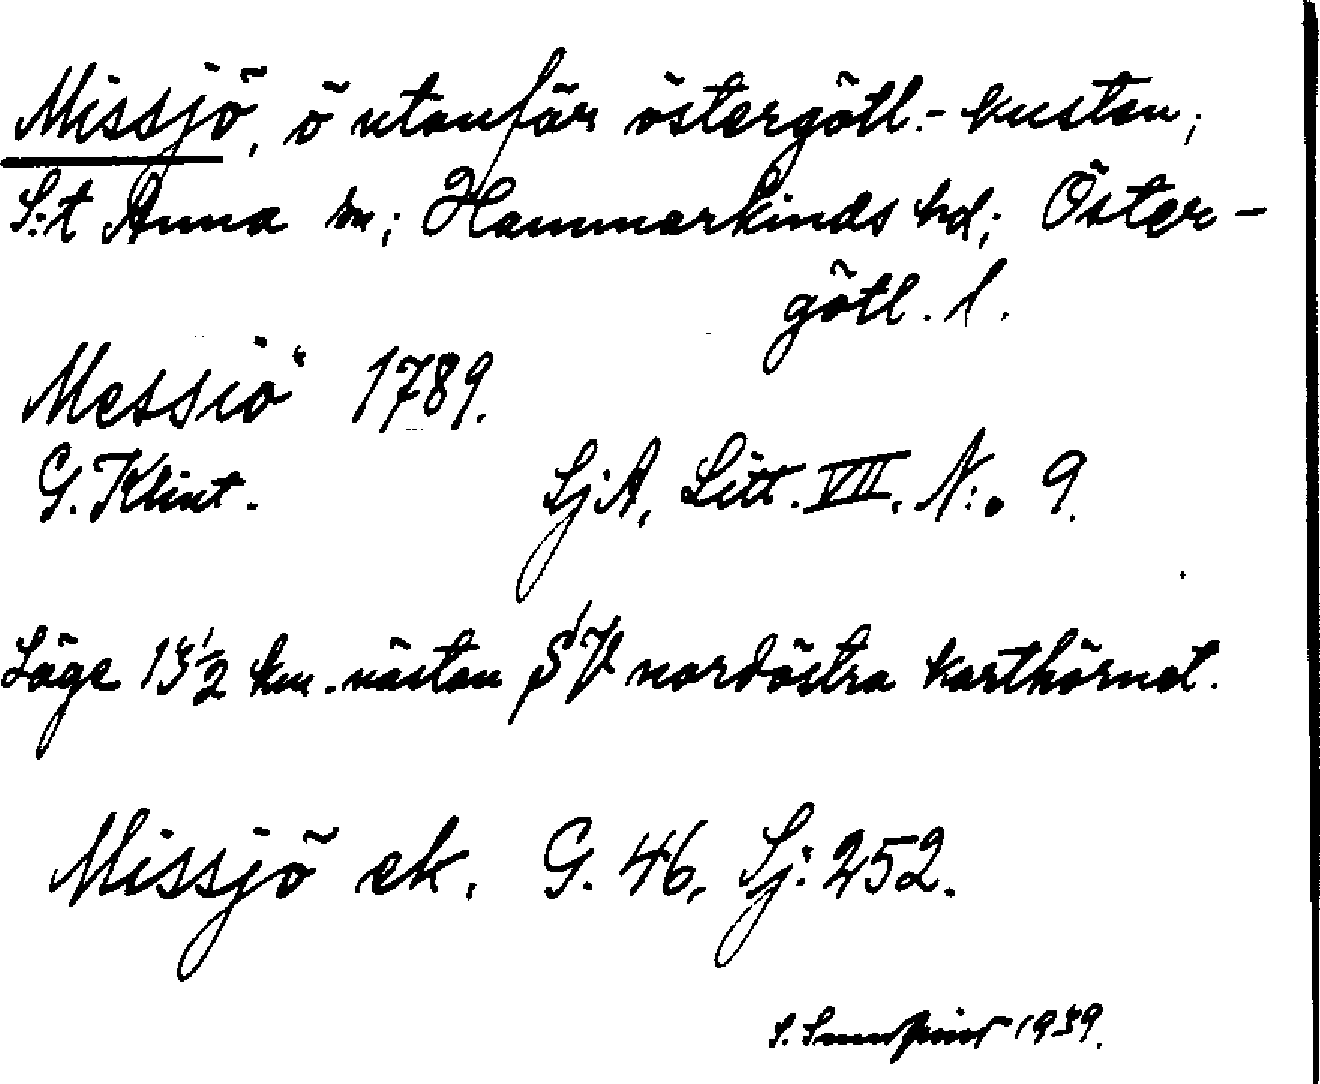 Missjö, ö utanför östergötl.-kusten;
S:t Anna sn; Hammarkinds hd; Öster-
götl. l.
Messiö 1789.
G. Klint. Sj:A, Litt. VII. N:o 9.
Läge 13½ km. nästan SV nordöstra karthörnet.
Missjö ek. G. 46, Sj: 252.
S. 1939.